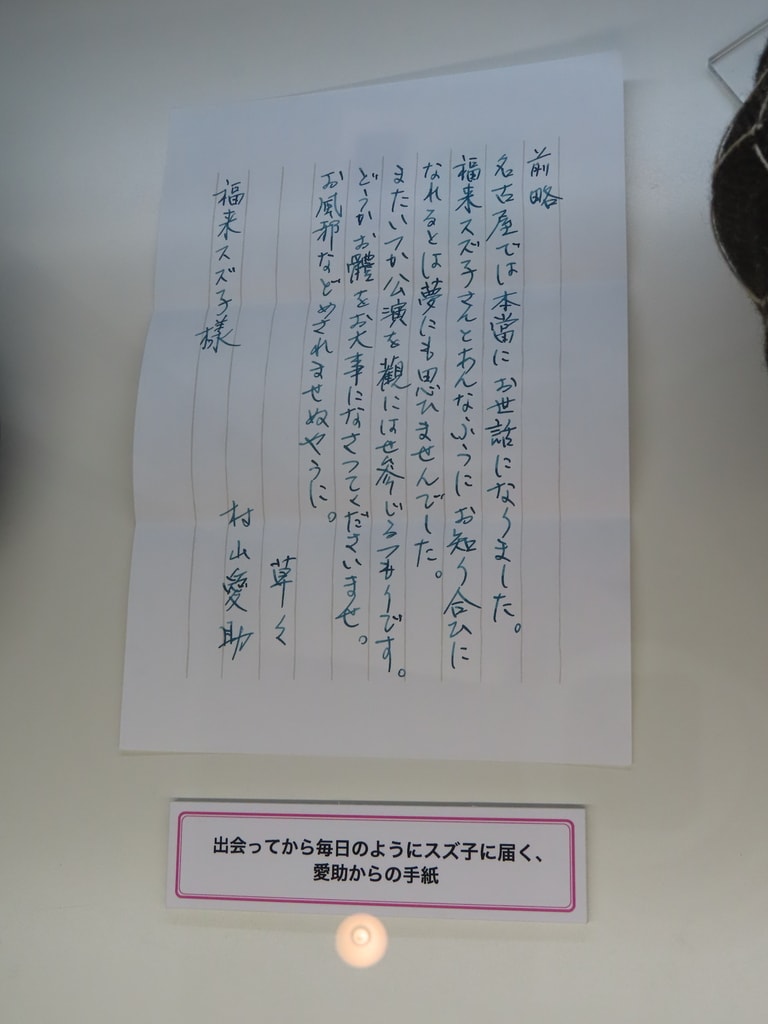 前略
名古屋では本當にお世話になりました。
福来スズ子さんとあんなふうにお知り合ひに
なれるとは夢にも思ひませんでした。
またいつか公演を觀にはせ参じるつもりです。
どうかお體をお大事になさつてくださいませ。
お風邪などめされませぬやうに。
草々
村山愛助
福来スズ子様
出会ってから毎日のようにスズ子に届く、
愛助からの手紙